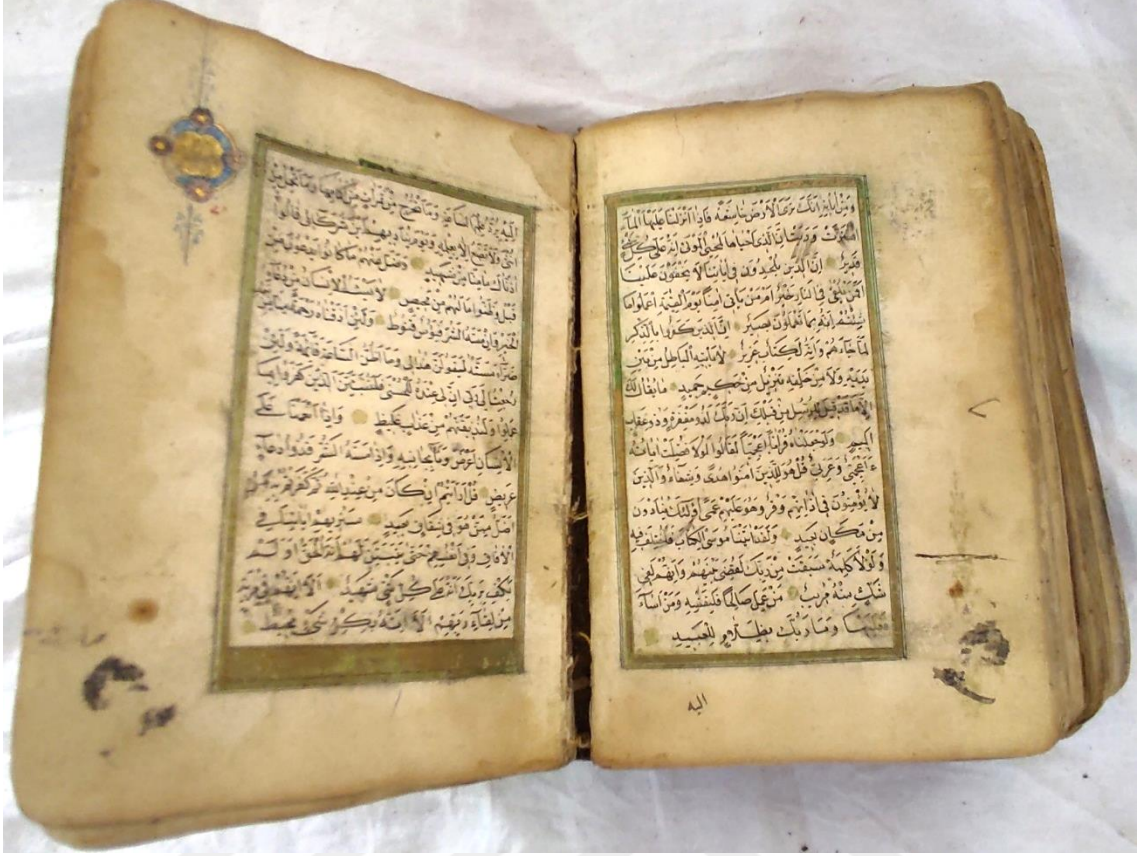 وَمِنْ اٰيَاتِهِ اَنَّكَ تَرَى الْاَرْضَ خَاشِعَةً فَاِذَا اَنْزَلْنَا عَلَيْهَا الْمَاءَ
اهْتَزَّتْ وَرَبَتْ اِنَّ الَّذِي اَحْيَاهَا لَمُحْيِي الْمَوْتٰى اِنَّهُ عَلٰى كُلِّ شَيْءٍ
قَدِيرٌ اِنَّ الَّذِينَ يُلْحِدُونَ فِي اٰيَاتِنَا لَا يَخْفَوْنَ عَلَيْنَا
اَفَمَنْ يُلْقٰى فِي النَّارِ خَيْرٌ اَمْ مَنْ يَاْتِي اٰمِنًا يَوْمَ الْقِيٰمَةِ اعْمَلُوا مَا
شِئْتُمْ اِنَّهُ بِمَا تَعْمَلُونَ بَصِيرٌ اِنَّ الَّذِينَ كَفَرُوا بِالذِّكْرِ
لَمَّا جَاءَهُمْ وَاِنَّهُ لَكِتَابٌ عَزِيزٌ لَا يَاْتِيهِ الْبَاطِلُ مِنْ بَيْنِ
يَدَيْهِ وَلَا مِنْ خَلْفِهِ تَنْزِيلٌ مِنْ حَكِيمٍ حَمِيدٍ مَا يُقَالُ لَكَ
اِلَّا مَا قَدْ قِيلَ لِلرُّسُلِ مِنْ قَبْلِكَ اِنَّ رَبَّكَ لَذُو مَغْفِرَةٍ وَذُو عِقَابٍ
اَلِيمٍ وَلَوْ جَعَلْنَاهُ قُرْاٰنًا اَعْجَمِيًّا لَقَالُوا لَوْلَا فُصِّلَتْ اٰيَاتُهُ
ءَاَعْجَمِيٌّ وَعَرَبِيٌّ قُلْ هُوَ لِلَّذِينَ اٰمَنُوا هُدًى وَشِفَاءٌ وَالَّذِينَ
لَا يُؤْمِنُونَ فِي اٰذَانِهِمْ وَقْرٌ وَهُوَ عَلَيْهِمْ عَمًى اُولٰئِكَ يُنَادَوْنَ
مِنْ مَكَانٍ بَعِيدٍ وَلَقَدْ اٰتَيْنَا مُوسَى الْكِتَابَ فَاخْتُلِفَ فِيهِ
وَلَوْلَا كَلِمَةٌ سَبَقَتْ مِنْ رَبِّكَ لَقُضِيَ بَيْنَهُمْ وَاِنَّهُمْ لَفِي
شَكٍّ مِنْهُ مُرِيبٍ مَنْ عَمِلَ صَالِحًا فَلِنَفْسِهِ وَمَنْ اَسَاءَ
فَعَلَيْهَا وَمَا رَبُّكَ بِظَلَّامٍ لِلْعَبِيدِ
اليه
اِلَيْهِ يُرَدُّ عِلْمُ السَّاعَةِ وَمَا تَخْرُجُ مِنْ ثَمَرَاتٍ مِنْ اَكْمَامِهَا وَمَا تَحْمِلُ مِنْ
اُنْثٰى وَلَا تَضَعُ اِلَّا بِعِلْمِهِ وَيَوْمَ يُنَادِيهِمْ اَيْنَ شُرَكَائِي قَالُوا
اٰذَنَّاكَ مَا مِنَّا مِنْ شَهِيدٍ وَضَلَّ عَنْهُمْ مَا كَانُوا يَدْعُونَ مِنْ
قَبْلُ وَظَنُّوا مَا لَهُمْ مِنْ مَحِيصٍ لَا يَسْئَمُ الْاِنْسَانُ مِنْ دُعَاءِ
الْخَيْرِ وَاِنْ مَسَّهُ الشَّرُّ فَيَؤُسٌ قَنُوطٌ وَلَئِنْ اَذَقْنَاهُ رَحْمَةً مِنَّا مِنْ
ضَرَّاءَ مَسَّتْهُ لَيَقُولَنَّ هٰذَا لِي وَمَا اَظُنُّ السَّاعَةَ قَائِمَةً وَلَئِنْ
رُجِعْتُ اِلٰى رَبِّي اِنَّ لِي عِنْدَهُ لَلْحُسْنٰى فَلَنُنَبِّئَنَّ الَّذِينَ كَفَرُوا بِمَا
عَمِلُوا وَلَنُذِيقَنَّهُمْ مِنْ عَذَابٍ غَلِيظٍ وَاِذَا اَنْعَمْنَا عَلَى
الْاِنْسَانِ اَعْرَضَ وَنَاٰ بِجَانِبِهِ وَاِذَا مَسَّهُ الشَّرُّ فَذُو دُعَاءٍ
عَرِيضٍ قُلْ اَرَاَيْتُمْ اِنْ كَانَ مِنْ عِنْدِ اللهِ ثُمَّ كَفَرْتُمْ بِهِ مَنْ
اَضَلُّ مِمَّنْ هُوَ فِي شِقَاقٍ بَعِيدٍ سَنُرِيهِمْ اٰيَاتِنَا فِي
الْاٰفَاقِ وَفِي اَنْفُسِهِمْ حَتّٰى يَتَبَيَّنَ لَهُمْ اَنَّهُ الْحَقُّ اَوَلَمْ
يَكْفِ بِرَبِّكَ اَنَّهُ عَلٰى كُلِّ شَيْءٍ شَهِيدٌ اَلَا اِنَّهُمْ فِي مِرْيَةٍ
مِنْ لِقَاءِ رَبِّهِمْ اَلَا اِنَّهُ بِكُلِّ شَيْءٍ مُحِيطٌ